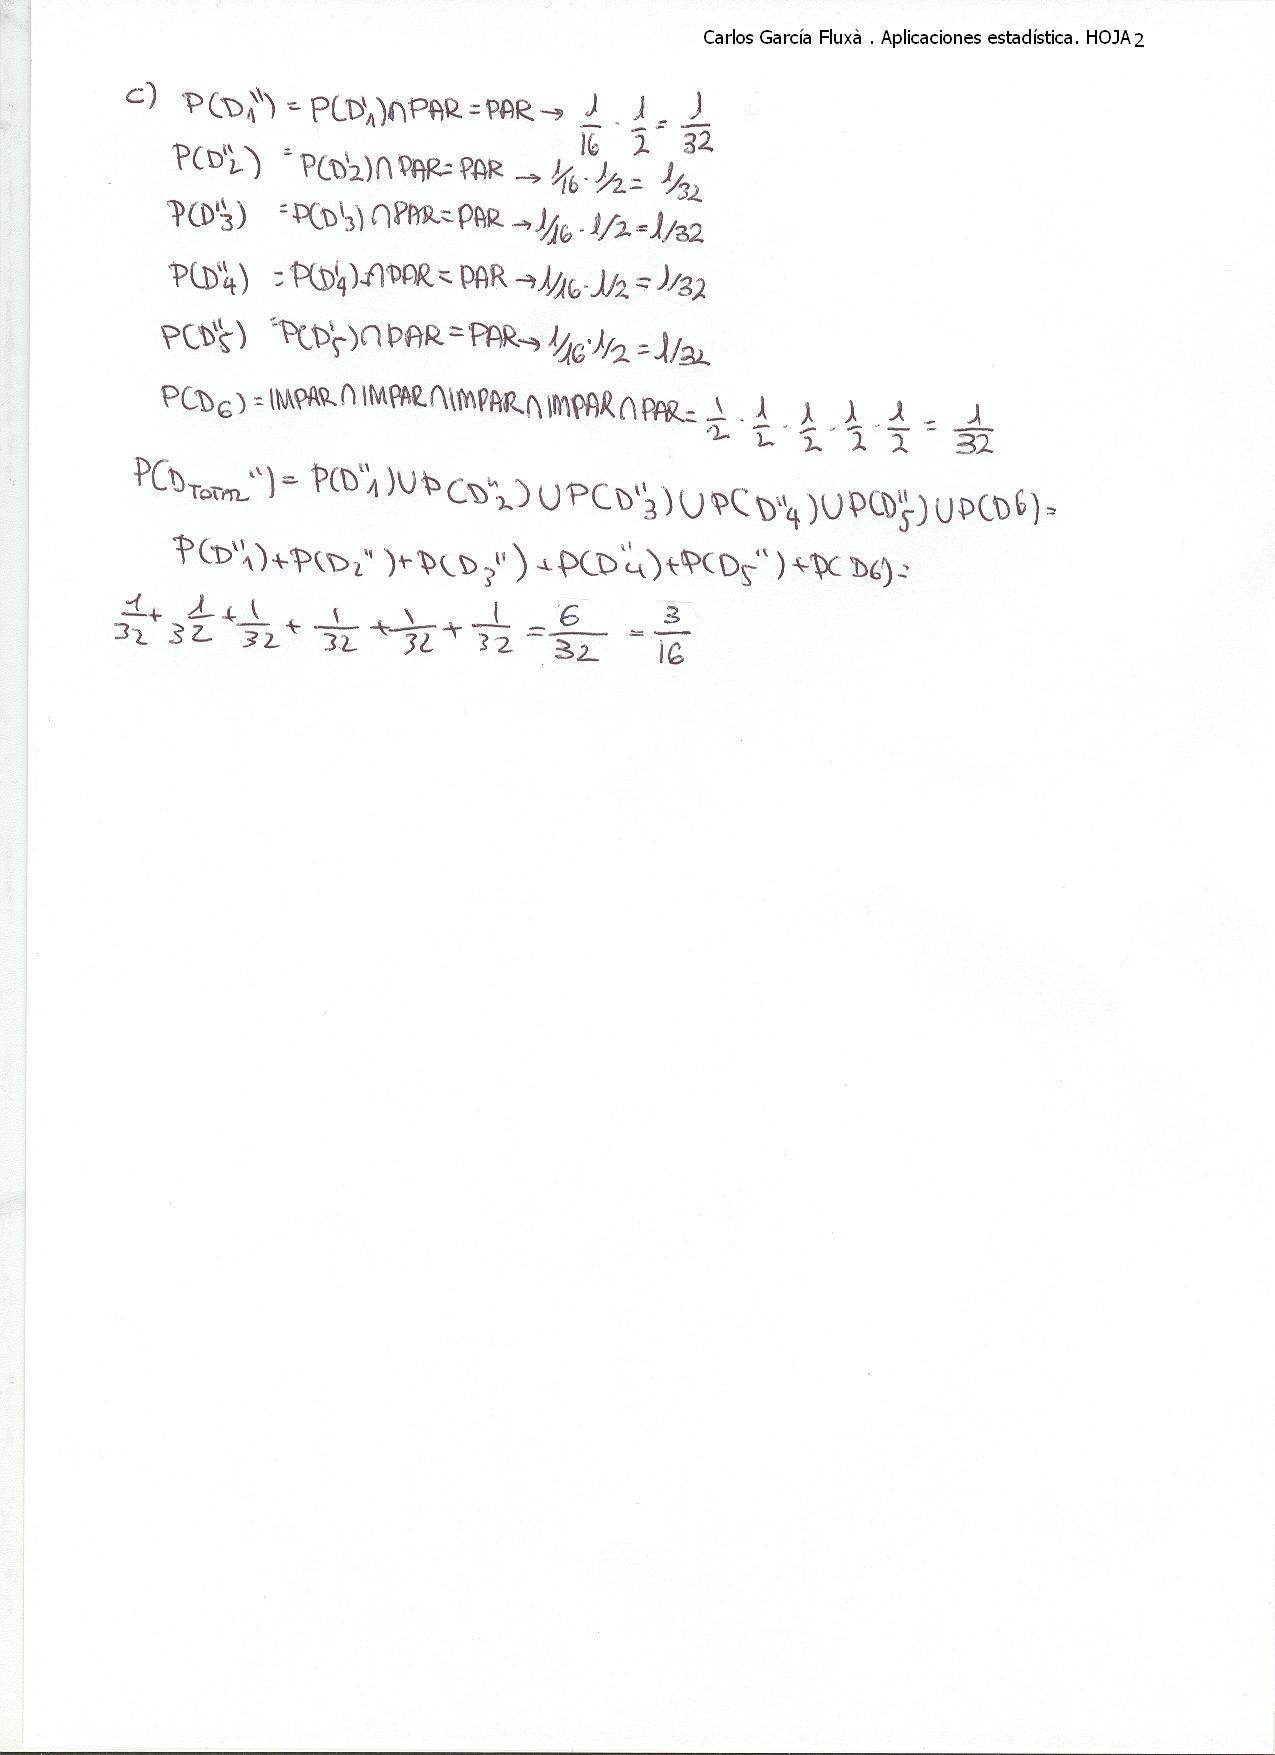 Carlos García Fluxà . Aplicaciones estadística. HOJA 2
c) P(D₁'') = P(D'₁)∩PAR = PAR → 1/16 · 1/2 = 1/32
P(D''₂) = P(D'₂)∩PAR = PAR → 1/16 · 1/2 = 1/32
P(D''₃) = P(D'₃)∩PAR = PAR → 1/16 · 1/2 = 1/32
P(D''₄) = P(D'₄)∩PAR = PAR → 1/16 · 1/2 = 1/32
P(D''₅) = P(D'₅)∩PAR = PAR → 1/16 · 1/2 = 1/32
P(D₆) = IMPAR∩IMPAR∩IMPAR∩IMPAR∩PAR = 1/2 · 1/2 · 1/2 · 1/2 · 1/2 = 1/32
P(D_TOTAL'') = P(D''₁)∪P(D''₂)∪P(D''₃)∪P(D''₄)∪P(D''₅)∪P(D6) =
P(D''₁)+P(D₂'')+P(D₃'')+P(D''₄)+P(D₅'')+P(D6) =
1/32 + 1/32 + 1/32 + 1/32 + 1/32 + 1/32 = 6/32 = 3/16